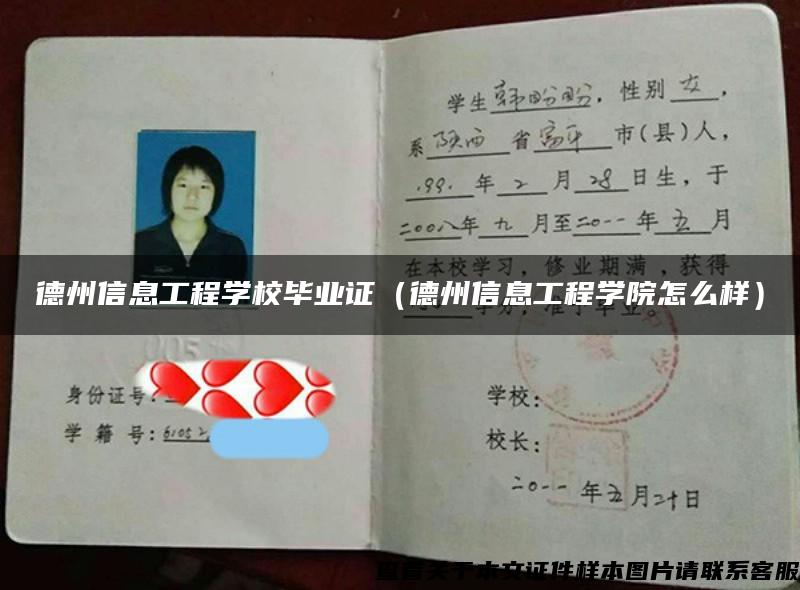 学生韩盼盼，性别女，
系陕西省富平市(县)人，
1991年2月28日生，于
二00八年九月至二0一一年五月
在本校学习，修业期满，获得
学分，准予毕业。
德州信息工程学校毕业证（德州信息工程学院怎么样）
005
身份证号：
学 籍 号：61052
学校：
校长：
二0一一年五月二十日
查看关于本文证件样本图片请联系客服